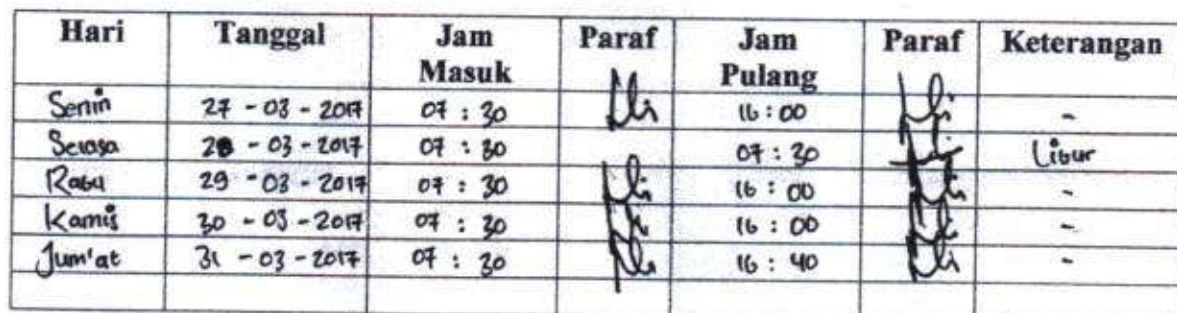 Hari Tanggal Jam Masuk Paraf Jam Pulang Paraf Keterangan
Senin 27 - 03 - 2017 07 : 30 16 : 00 -
Selasa 28 - 03 - 2017 07 : 30 07 : 30 Libur
Rabu 29 - 03 - 2017 07 : 30 16 : 00 -
Kamis 30 - 03 - 2017 07 : 30 16 : 00 -
Jum'at 31 - 03 - 2017 07 : 30 16 : 40 -